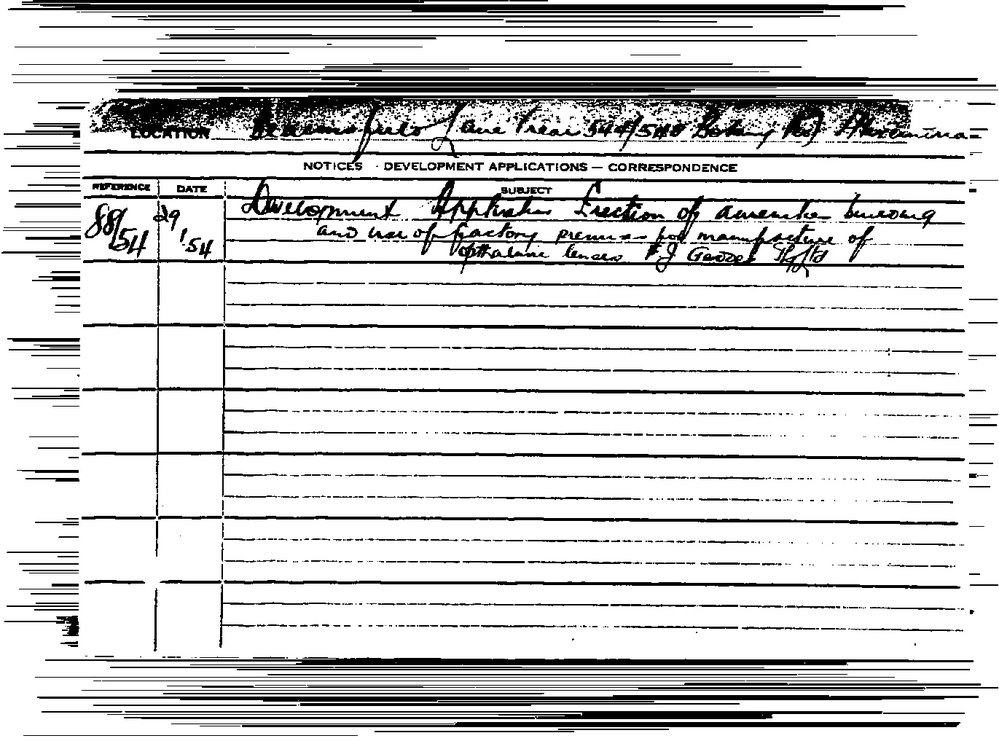 LOCATION Lane Rear 544/548 Botany Rd Alexandria
NOTICES - DEVELOPMENT APPLICATIONS — CORRESPONDENCE
REFERENCE DATE SUBJECT
88/54 29/1/54 Development Application Erection of amenities building
and use of factory premises for manufacture of
opthalmic lenses P/Ltd